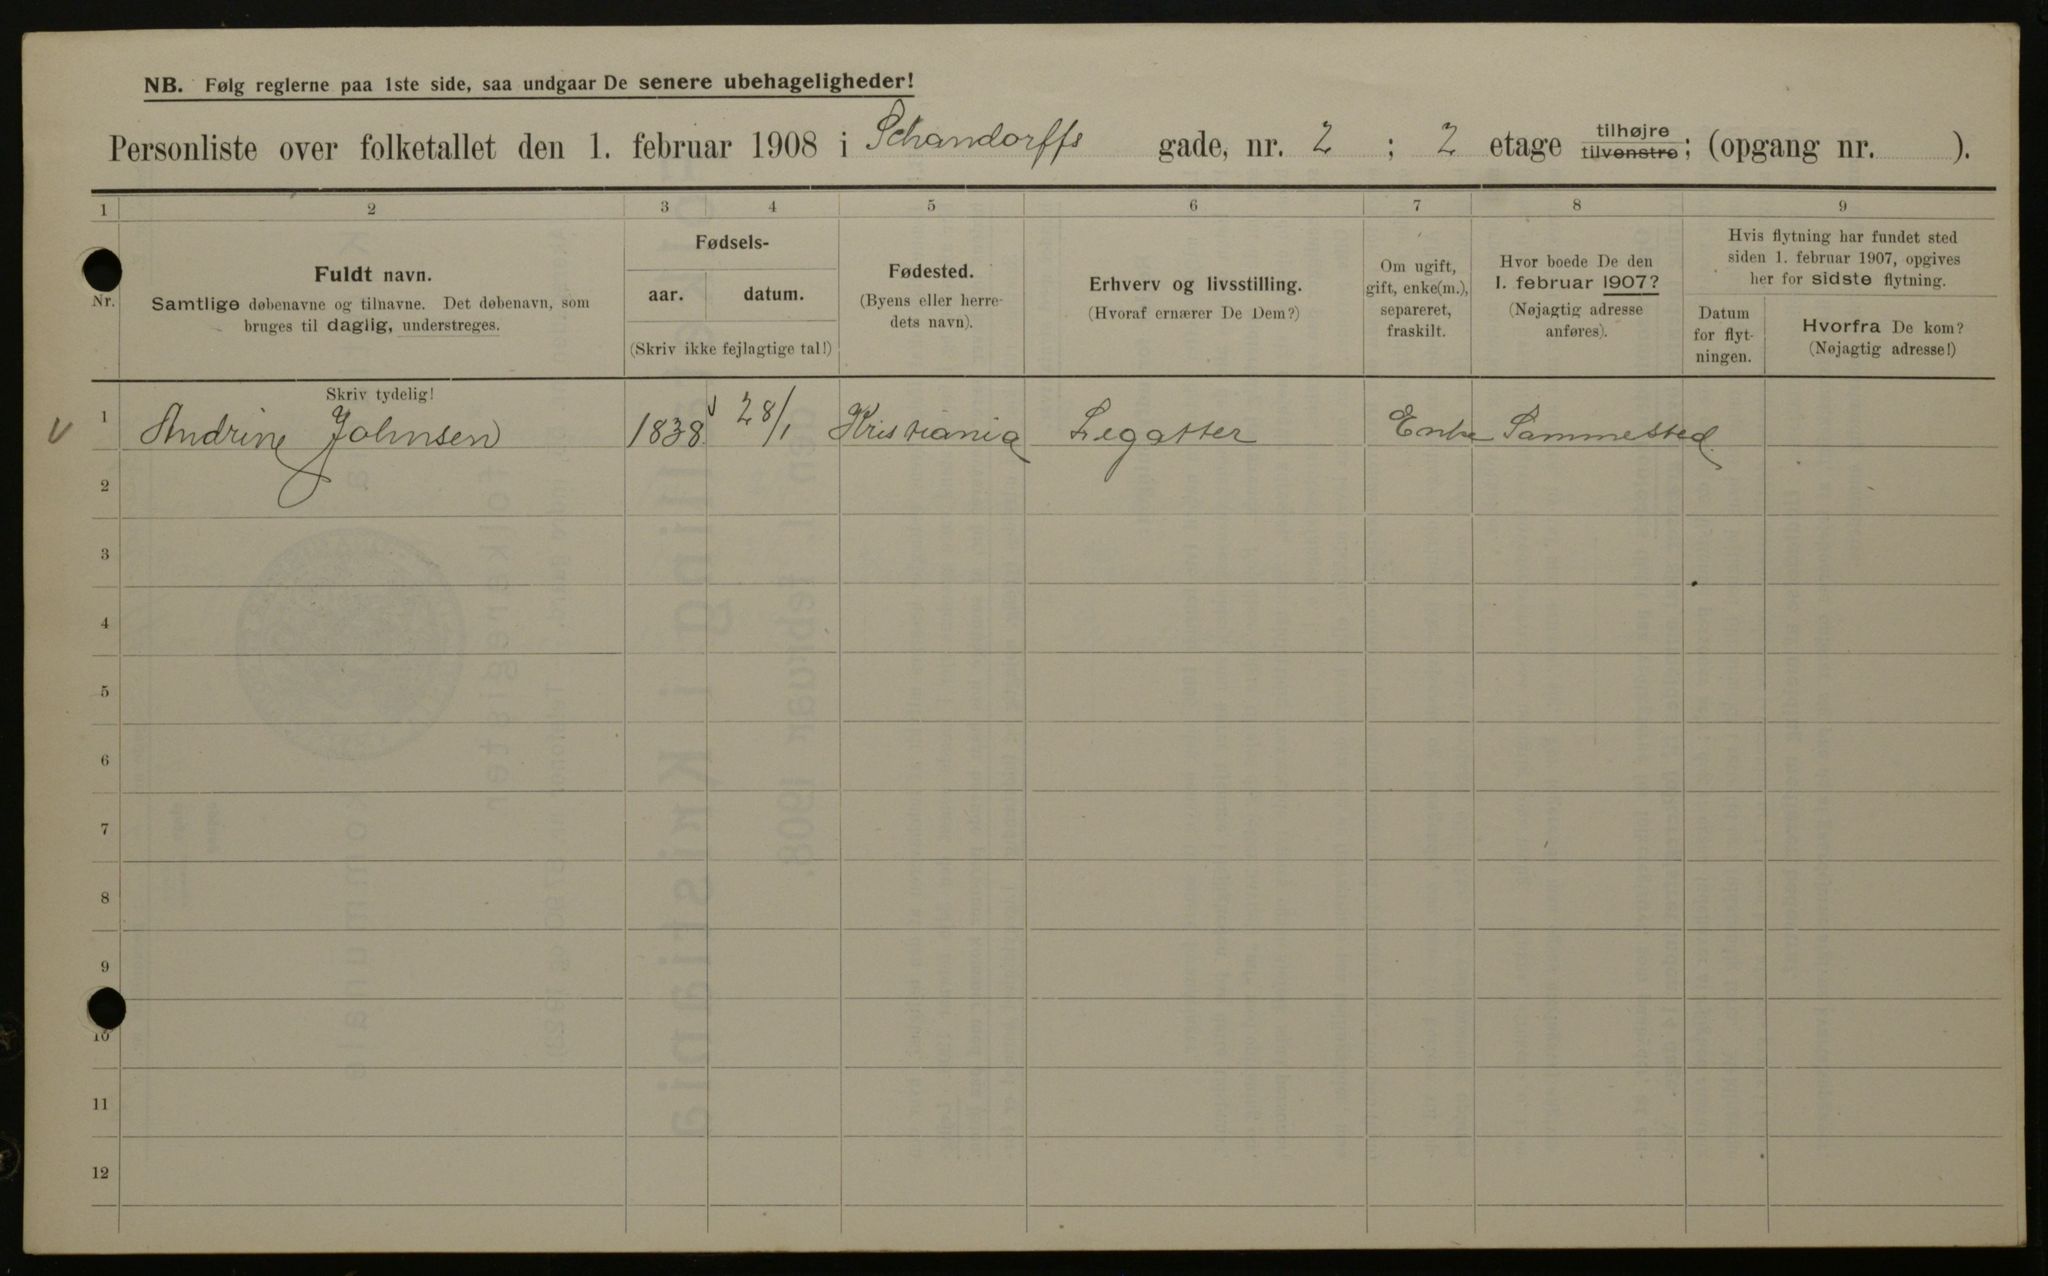 NB. Følg reglerne paa 1ste side, saa undgaar De senere ubehageligheder!
Personliste over folketallet den 1. februar 1908 i Schandorffs gade, nr. 2 ; 2 etage tilhøjre tilvenstre; (opgang nr. ).
1 2 3 4 5 6 7 8 9
Nr.
Fuldt navn.
Samtlige døbenavne og tilnavne. Det døbenavn, som
bruges til daglig, understreges.
Fødsels-
aar. datum.
(Skriv ikke fejlagtige tal!)
Fødested.
(Byens eller herre-
dets navn).
Erhverv og livsstilling.
(Hvoraf ernærer De Dem?)
Om ugift,
gift, enke(m.),
separeret,
fraskilt.
Hvor boede De den
1. februar 1907?
(Nøjagtig adresse
anføres).
Hvis flytning har fundet sted
siden 1. februar 1907, opgives
her for sidste flytning.
Datum
for flyt-
ningen.
Hvorfra De kom?
(Nøjagtig adresse!)
Skriv tydelig!
1 Andrine Johnsen 1838 28/1 Kristiania Legatter Enke Sammested.
2
3
4
5
6
7
8
9
10
11
12